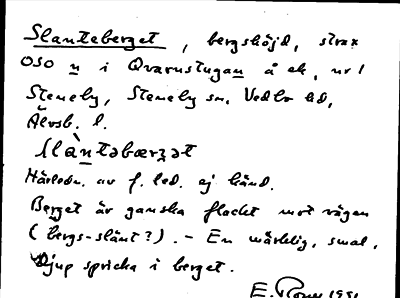 Slanteberget, bergshöjd, strax
OSO n i Qvarnstugan å ek. nr 1
Steneby, Steneby sn. Vedbo hd,
Älvsb. l.
slàntəbærʒət
Härledn. av f. led. ej känd.
Berget är ganska flackt mot vägen
(bergs-slänt?). - En märklig, smal,
djup spricka i berget.